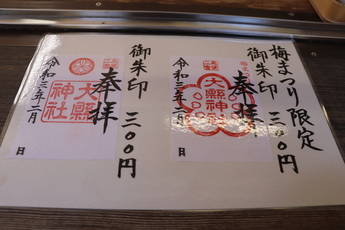 梅まつり限定
御朱印 三〇〇円
奉拝
大縣神社
令和三年二月 日
御朱印 三〇〇円
奉拝
大縣神社
令和三年二月 日